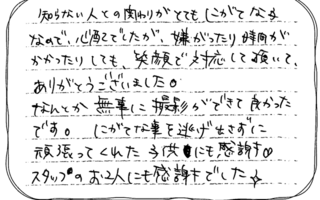 知らない人との関わりがとてもにがてな子
なので、心配でしたが、嫌がったり時間が
かかったりしても、笑顔で対応して頂いて、
ありがとうございました。
なんとか無事に撮影ができて良かった
です。 にがてな事を逃げ出さずに
頑張ってくれた子供にも感謝。
スタッフのお2人にも感謝でした☆